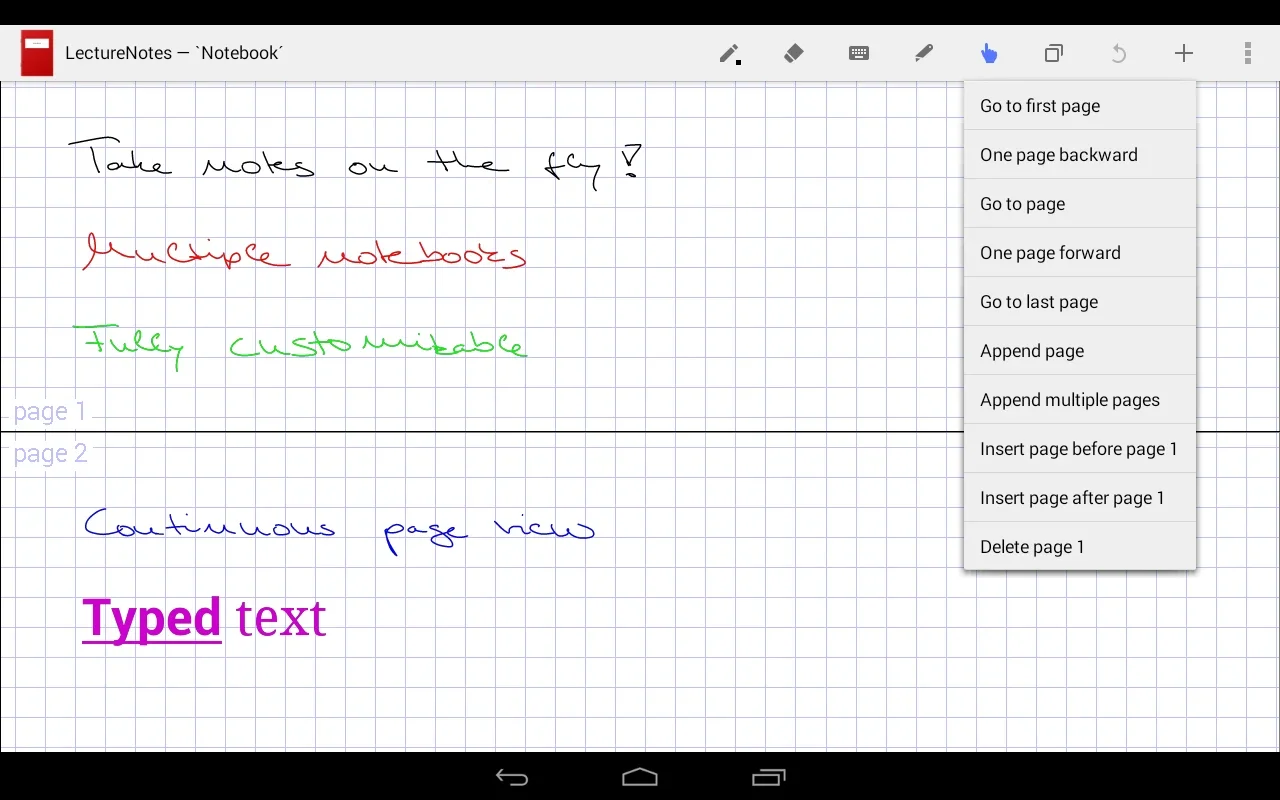 LectureNotes — `Notebook´
Take notes on the fly!
Multiple notebooks
Fully customizable
page 1
page 2
Continuous page view
Typed text
Go to first page
One page backward
Go to page
One page forward
Go to last page
Append page
Append multiple pages
Insert page before page 1
Insert page after page 1
Delete page 1